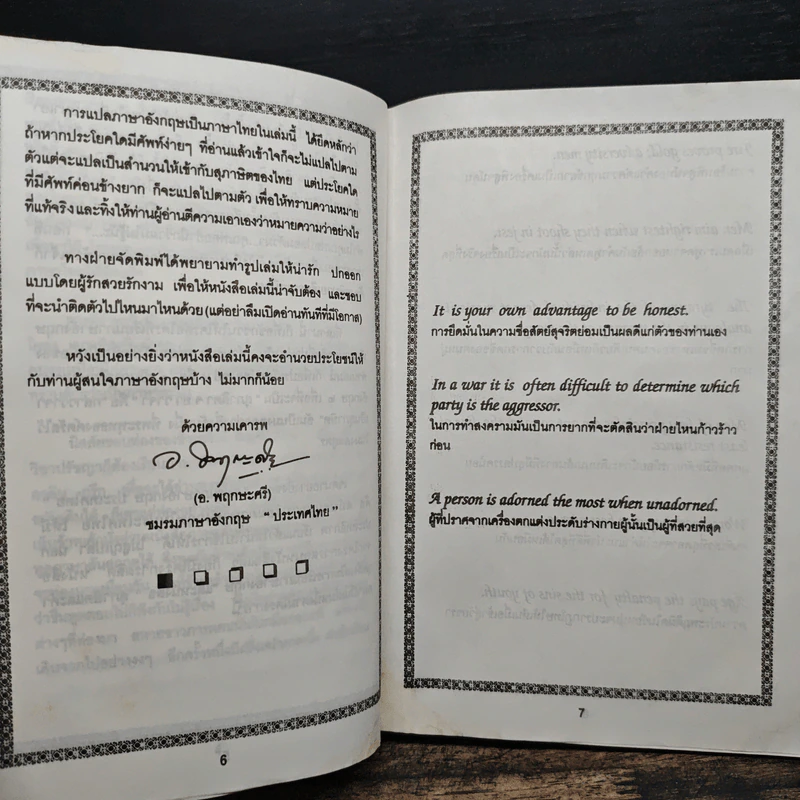 การแปลภาษาอังกฤษเป็นภาษาไทยในเล่มนี้ ได้ยึดหลักว่า
ถ้าหากประโยคใดมีศัพท์ง่ายๆ ที่อ่านแล้วเข้าใจก็จะไม่แปลไปตาม
ตัวแต่จะแปลเป็นสำนวนให้เข้ากับสุภาษิตของไทย แต่ประโยคใด
ที่มีศัพท์ค่อนข้างยาก ก็จะแปลไปตามตัว เพื่อให้ทราบความหมาย
ที่แท้จริง และทิ้งให้ท่านผู้อ่านตีความเอาเองว่าหมายความว่าอย่างไร
ทางฝ่ายจัดพิมพ์ได้พยายามทำรูปเล่มให้น่ารัก ปกออก
แบบโดยผู้รักสวยรักงาม เพื่อให้หนังสือเล่มนี้น่าจับต้อง และชอบ
ที่จะนำติดตัวไปไหนมาไหนด้วย (แต่อย่าลืมเปิดอ่านทันทีที่มีโอกาส)
หวังเป็นอย่างยิ่งว่าหนังสือเล่มนี้คงจะอำนวยประโยชน์ให้
กับท่านผู้สนใจภาษาอังกฤษบ้าง ไม่มากก็น้อย
ด้วยความเคารพ
(อ. พฤกษะศรี)
ชมรมภาษาอังกฤษ “ประเทศไทย”
6
It is your own advantage to be honest.
การยึดมั่นในความซื่อสัตย์สุจริตย่อมเป็นผลดีแก่ตัวของท่านเอง
In a war it is often difficult to determine which
party is the aggressor.
ในการทำสงครามมันเป็นการยากที่จะตัดสินว่าฝ่ายไหนก้าวร้าว
ก่อน
A person is adorned the most when unadorned.
ผู้ที่ปราศจากเครื่องตกแต่งประดับร่างกายผู้นั้นเป็นผู้ที่สวยที่สุด
7